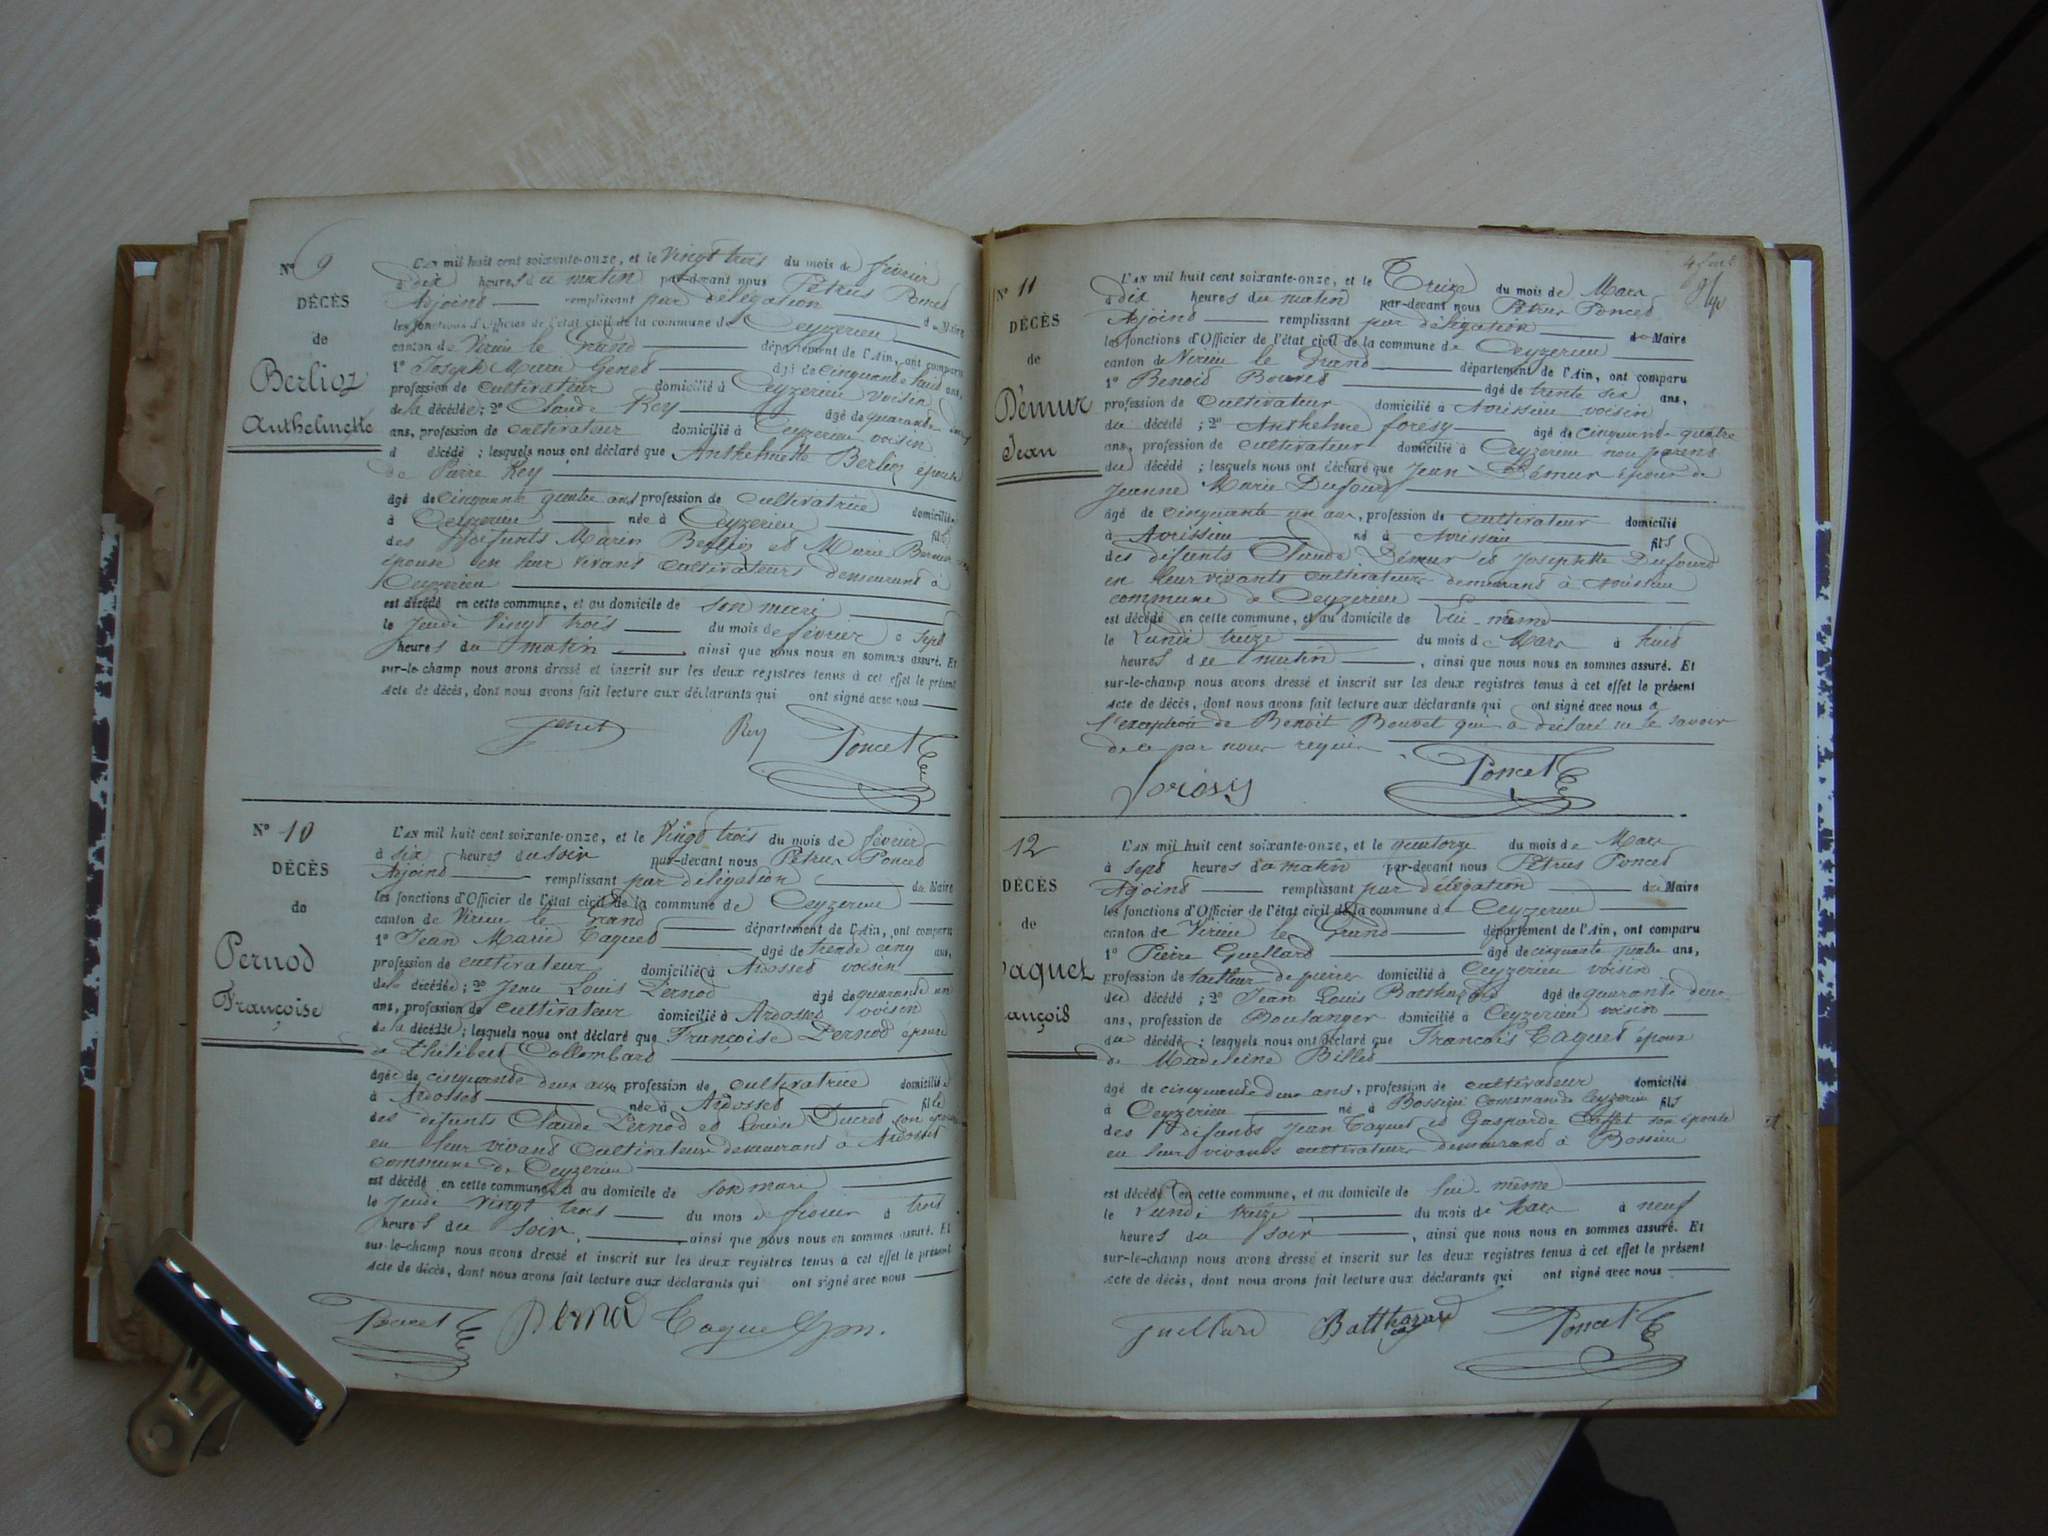 N° 9
DÉCÈS
de
Berlioz
Anthelmette
L'AN mil huit cent soixante-onze, et le Vingt trois du mois de février
à dix heures du matin par-devant nous Pétrus Poncet
Adjoint remplissant par délégation du Maire
les fonctions d'Officier de l'état civil de la commune de Ceyzerieu
canton de Virieu le Grand département de l'Ain, ont comparu
1° Joseph Marie Genet âgé de cinquante huit ans,
profession de cultivateur domicilié à Ceyzerieu voisin
de la décédée; 2° Claude Rey âgé de quarante
ans, profession de cultivateur domicilié à Ceyzerieu voisin
d décédé ; lesquels nous ont déclaré que Anthelmette Berlioz épouse
de Pierre Rey
âgé de cinquante quatre ans profession de cultivatrice domiciliée
à Ceyzerieu née à Ceyzerieu fille
des défunts Marin Berlioz et Marie
épouse en leur vivant cultivateurs demeurant à
Ceyzerieu
est décédé en cette commune, et au domicile de son mari
le jeudi vingt trois du mois de février à sept
heures du matin ainsi que nous nous en sommes assuré. Et
sur-le-champ nous avons dressé et inscrit sur les deux registres tenus à cet effet le présent
acte de décès, dont nous avons fait lecture aux déclarants qui ont signé avec nous
Genet Rey Poncet
N° 10
DÉCÈS
de
Pernod
Françoise
L'AN mil huit cent soixante-onze, et le Vingt trois du mois de février
à six heures du soir par-devant nous Pétrus Poncet
Adjoint remplissant par délégation du Maire
les fonctions d'Officier de l'état civil de la commune de Ceyzerieu
canton de Virieu le Grand département de l'Ain, ont comparu
1° Jean Marie Taquet âgé de trente cinq ans,
profession de cultivateur domicilié à Ardosset voisin
de la décédée; 2° Jean Louis Pernod âgé de quarante un
ans, profession de cultivateur domicilié à Ardosset voisin
de la décédée; lesquels nous ont déclaré que Françoise Pernod épouse
de Philibert Collombard
âgée de cinquante deux ans profession de cultivatrice domiciliée
à Ardosset née à Ardosset fille
des défunts Claude Pernod et Louise Ducret son épouse
en leur vivant cultivateurs demeurant à Ardosset
commune de Ceyzerieu
est décédé en cette commune, et au domicile de son mari
le jeudi vingt trois du mois de février à trois
heures du soir, ainsi que nous nous en sommes assuré. Et
sur-le-champ nous avons dressé et inscrit sur les deux registres tenus à cet effet le présent
acte de décès, dont nous avons fait lecture aux déclarants qui ont signé avec nous
Poncet Pernod Taquet jm.
N° 11
DÉCÈS
de
Démur
Jean
L'AN mil huit cent soixante-onze, et le Treize du mois de Mars
à dix heures du matin par-devant nous Pétrus Poncet
Adjoint remplissant par délégation de Maire
les fonctions d'Officier de l'état civil de la commune de Ceyzerieu
canton de Virieu le Grand département de l'Ain, ont comparu
1° Benoit Bouvet âgé de trente six ans,
profession de cultivateur domicilié à Avrissieu voisin
du décédé ; 2° Anthelme forésy âgé de cinquante quatre
ans, profession de cultivateur domicilié à Ceyzerieu non parent
du décédé ; lesquels nous ont déclaré que Jean Démur époux de
Jeanne Marie Dufourd
âgé de cinquante un ans, profession de cultivateur domicilié
à Avrissieu né à Avrissieu fils
des défunts Claude Démur et Josephtte Dufourd
en leur vivants cultivateurs demeurant à Avrissieu
commune de Ceyzerieu
est décédé en cette commune, et au domicile de Lui-même
le Lundi treize du mois de Mars à huit
heures du matin, ainsi que nous nous en sommes assuré. Et
sur-le-champ nous avons dressé et inscrit sur les deux registres tenus à cet effet le présent
acte de décès, dont nous avons fait lecture aux déclarants qui ont signé avec nous à
l'exception de Benoit Bouvet qui a déclaré ne le savoir
de ce par nous requis
forésy Poncet
12
DÉCÈS
de
aquet
ançois
L'AN mil huit cent soixante-onze, et le quatorze du mois de Mars
à sept heures du matin par-devant nous Pétrus Poncet
Adjoint remplissant par délégation du Maire
les fonctions d'Officier de l'état civil de la commune de Ceyzerieu
canton de Virieu le Grand département de l'Ain, ont comparu
1° Pierre Guellard âgé de cinquante quatre ans,
profession de tailleur de pierres domicilié à Ceyzerieu voisin
du décédé ; 2° Jean Louis Balthazard âgé de quarante deux
ans, profession de Boulanger domicilié à Ceyzerieu voisin
du décédé ; lesquels nous ont déclaré que François Taquet époux
de Madeleine Billet
âgé de cinquante deux ans, profession de cultivateur domicilié
à Ceyzerieu né à Bossieu Commune de Ceyzerieu fils
des défunts Jean Taquet et Gasparde son épouse
en leur vivants cultivateurs demeurant à Bossieu
est décédé en cette commune, et au domicile de lui-même
le Lundi treize du mois de Mars à neuf
heures du soir, ainsi que nous nous en sommes assuré. Et
sur-le-champ nous avons dressé et inscrit sur les deux registres tenus à cet effet le présent
acte de décès, dont nous avons fait lecture aux déclarants qui ont signé avec nous
Guellard Balthazard Poncet